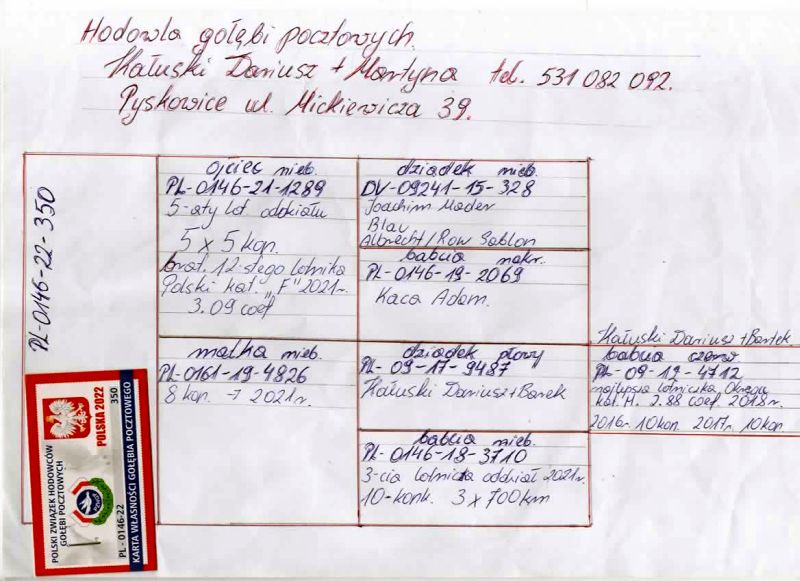 Hodowla gołębi pocztowych.
Hałuski Dariusz + Martyna tel. 531 082 092.
Pyskowice ul. Mickiewicza 39.
PL-0146-22-350
ojciec nieb.
PL-0146-21-1289
5-aty lot oddziału
5 x 5 kon.
brat. 12-stego lotnika
Polski kat. "F" 2021r.
3.09 coef
matka nieb.
PL-0161-19-4826
8 kon. → 2021r.
dziadek nieb.
DV-09241-15-328
Joachim Mader
Blau
Albrecht/Row Sablon
babcia nakr.
PL-0146-19-2069
Kaca Adam.
dziadek płowy
PL-09-17-9487
Hałuski Dariusz + Bartek
babcia nieb.
PL-0146-18-3710
3-cia lotnica oddział 2021r.
10-konk. 3 x 700km
Hałuski Dariusz + Bartek
babcia czerw
PL-09-12-4712
najlepsza lotniczka Okręgu
kat. M. 2.88 coef 2018r.
2016r. 10 kon. 2017r. 10 kon
POLSKI ZWIĄZEK HODOWCÓW
GOŁĘBI POCZTOWYCH
POLSKA 2022
350
PL - 0146-22
KARTA WŁASNOŚCI GOŁĘBIA POCZTOWEGO